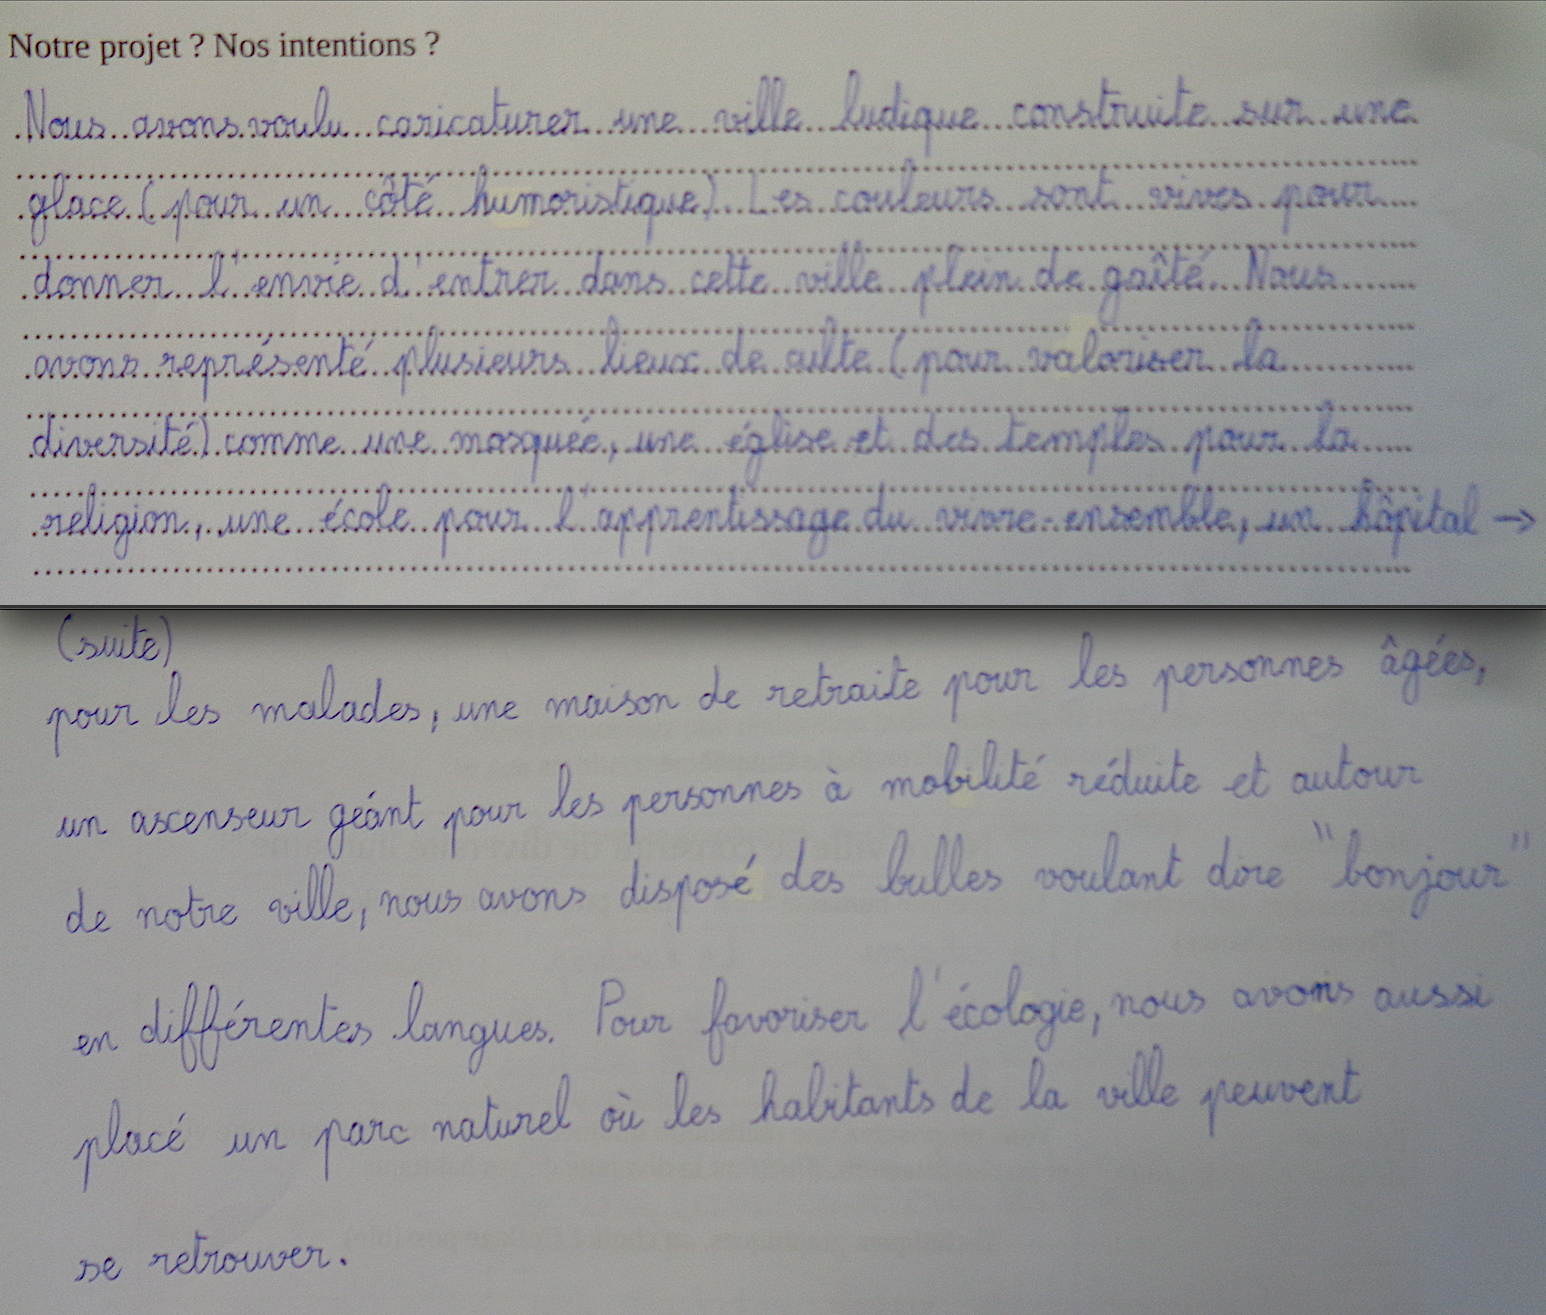 Notre projet ? Nos intentions ?
Nous avons voulu caricaturer une ville ludique construite sur une
glace (pour un côté humoristique). Les couleurs sont vives pour
donner l'envie d'entrer dans cette ville plein de gaîté. Nous
avons représenté plusieurs lieux de culte (pour valoriser la
diversité) comme une mosquée, une église et des temples pour la
religion, une école pour l'apprentissage du vivre-ensemble, un hôpital →
(suite)
pour les malades, une maison de retraite pour les personnes âgées,
un ascenseur géant pour les personnes à mobilité réduite et autour
de notre ville, nous avons disposé des bulles voulant dire "bonjour"
en différentes langues. Pour favoriser l'écologie, nous avons aussi
placé un parc naturel où les habitants de la ville peuvent
se retrouver.